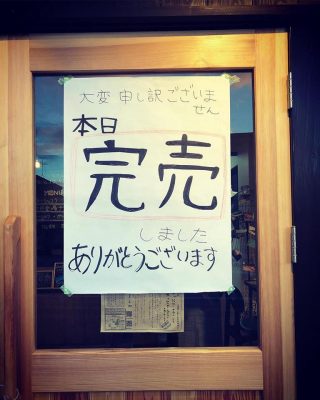 大変申し訳ございま
せん
本日
完売
しました
ありがとうございます